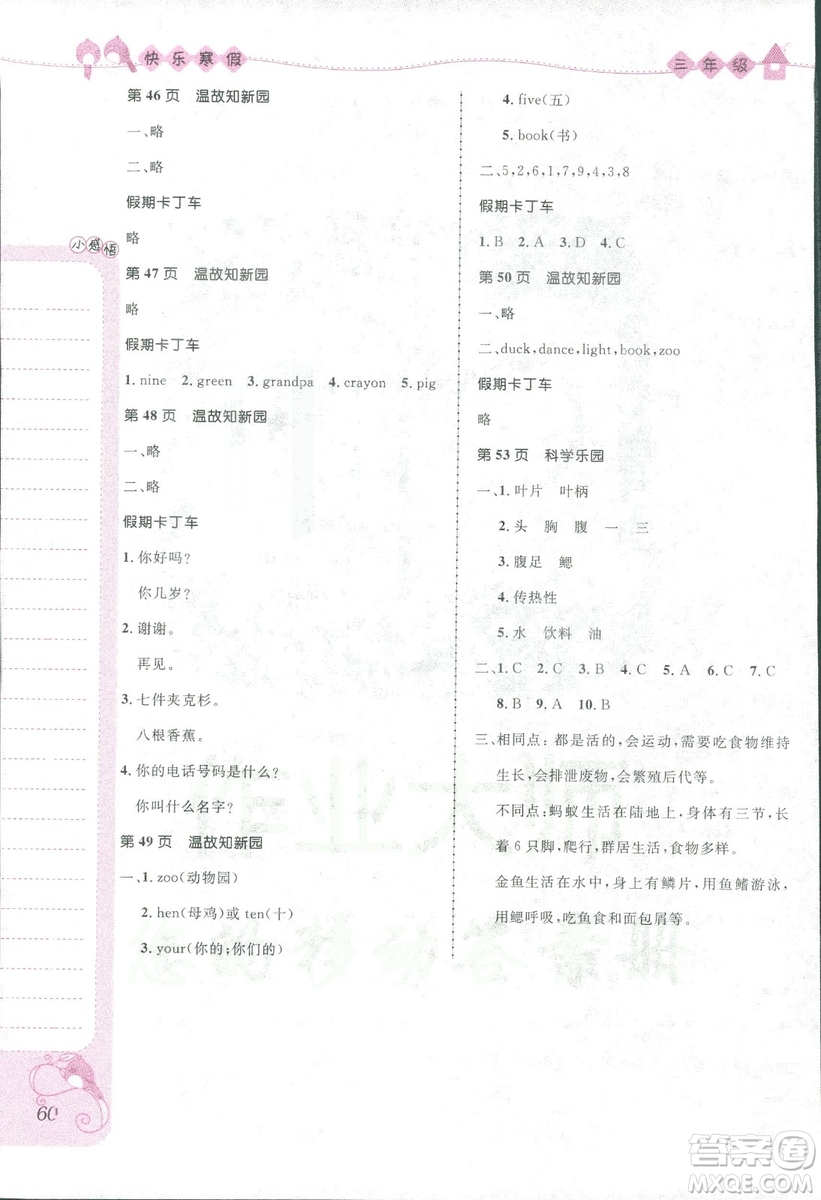 快乐寒假
三年级
第 46 页 温故知新园
一、略
二、略
假期卡丁车
略
小感悟
第 47 页 温故知新园
略
假期卡丁车
1. nine 2. green 3. grandpa 4. crayon 5. pig
第 48 页 温故知新园
一、略
二、略
假期卡丁车
1. 你好吗?
你几岁?
2. 谢谢。
再见。
3. 七件夹克杉。
八根香蕉。
4. 你的电话号码是什么?
你叫什么名字?
第 49 页 温故知新园
一、1. zoo(动物园)
2. hen(母鸡)或 ten(十)
3. your(你的;你们的)
4. five(五)
5. book(书)
二、5,2,6,1,7,9,4,3,8
假期卡丁车
1. B 2. A 3. D 4. C
第 50 页 温故知新园
一、略
二、duck,dance,light,book,zoo
假期卡丁车
略
第 53 页 科学乐园
一、1. 叶片 叶柄
2. 头 胸 腹 一 三
3. 腹足 鳃
4. 传热性
5. 水 饮料 油
二、1. C 2. C 3. C 4. C 5. A 6. C 7. C
8. B 9. A 10. B
三、相同点:都是活的,会运动,需要吃食物维持
生长,会排泄废物,会繁殖后代等。
不同点:蚂蚁生活在陆地上,身体有三节,长
着 6 只脚,爬行,群居生活,食物多样。
金鱼生活在水中,身体有鳞片,用鱼鳍游泳,
用鳃呼吸,吃鱼食和面包屑等。
作业大师
您的移动答案册
60
答案圈
MXQE.COM